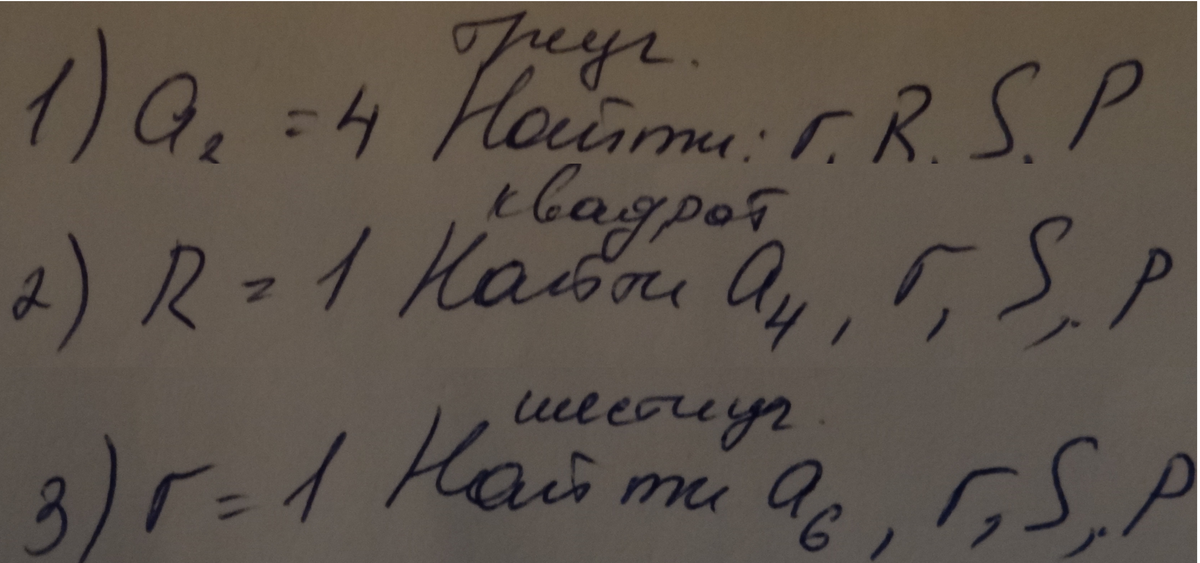 треуг.
1) a₂ = 4 Найти: r. R. S. P
квадрат
2) R = 1 Найти a₄, r, S, P
шестиуг.
3) r = 1 Найти a₆, r, S, P